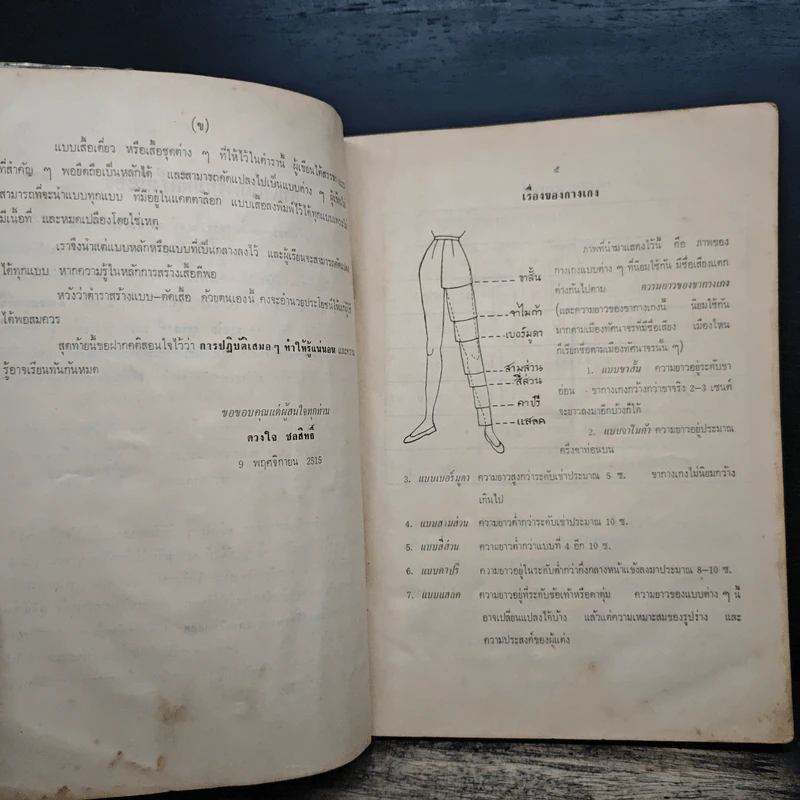 (ข)
แบบเสื้อเดี่ยว หรือเสื้อชุดต่าง ๆ ที่ให้ไว้ในตำรานี้ ผู้เขียนได้
ที่สำคัญ ๆ พอยึดถือเป็นหลักได้ และสามารถดัดแปลงไปเป็นแบบต่าง ๆ
สามารถที่จะนำแบบทุกแบบ ที่มีอยู่ในแคตตาล๊อก แบบเสื้อลงพิมพ์ไว้ได้ทุกแบบ
มีเนื้อที่ และหมดเปลืองโดยใช่เหตุ
เราจึงนำแต่แบบหลักหรือแบบที่เป็นกลางลงไว้ และผู้เรียนจะสามารถ
ได้ทุกแบบ หากความรู้ในหลักการสร้างเสื้อดีพอ
หวังว่าตำราสร้างแบบ-ตัดเสื้อ ด้วยตนเองนี้ คงจะอำนวยประโยชน์ให้แก่
ได้พอสมควร
สุดท้ายนี้ขอฝากคติสอนใจไว้ว่า การปฏิบัติเสมอ ๆ ทำให้รู้แน่นอน และความ
รู้อาจเรียนทันกันหมด
ขอขอบคุณแด่ผู้สนใจทุกท่าน
ดวงใจ ชลสิทธิ์
9 พฤศจิกายน 2515
๕
เรื่องของกางเกง
ขาสั้น
จาไมก้า
เบอร์มูดา
สามส่วน
สี่ส่วน
คาปรี
แสลค
ภาพที่นำมาแสดงไว้นี้ คือ ภาพของ
กางเกงแบบต่าง ๆ ที่นิยมใช้กัน มีชื่อเสียงแตก
ต่างกันไปตาม ความยาวของขากางเกง
(และความยาวของขากางเกงนี้ นิยมใช้กัน
มากตามเมืองทัศนาจรที่มีชื่อเสียง เมืองไหน
ก็เรียกชื่อตามเมืองทัศนาจรนั้น ๆ)
1. แบบขาสั้น ความยาวอยู่ระดับขา
อ่อน ขากางเกงกว้างกว่าขาจริง 2-3 เซนต์
จะยาวลงมาอีกบ้างก็ได้
2. แบบจาไมก้า ความยาวอยู่ประมาณ
ครึ่งขาท่อนบน
3. แบบเบอร์มูดา ความยาวสูงกว่าระดับเข่าประมาณ 5 ซ. ขากางเกงไม่นิยมกว้าง
เกินไป
4. แบบสามส่วน ความยาวต่ำกว่าระดับเข่าประมาณ 10 ซ.
5. แบบสี่ส่วน ความยาวต่ำกว่าแบบที่ 4 อีก 10 ซ.
6. แบบคาปรี ความยาวอยู่ในระดับต่ำกว่ากึ่งกลางหน้าแข้งลงมาประมาณ 8-10 ซ.
7. แบบแสลค ความยาวอยู่ที่ระดับข้อเท้าหรือตาตุ่ม ความยาวของแบบต่าง ๆ นี้
อาจเปลี่ยนแปลงได้บ้าง แล้วแต่ความเหมาะสมของรูปร่าง และ
ความประสงค์ของผู้แต่ง